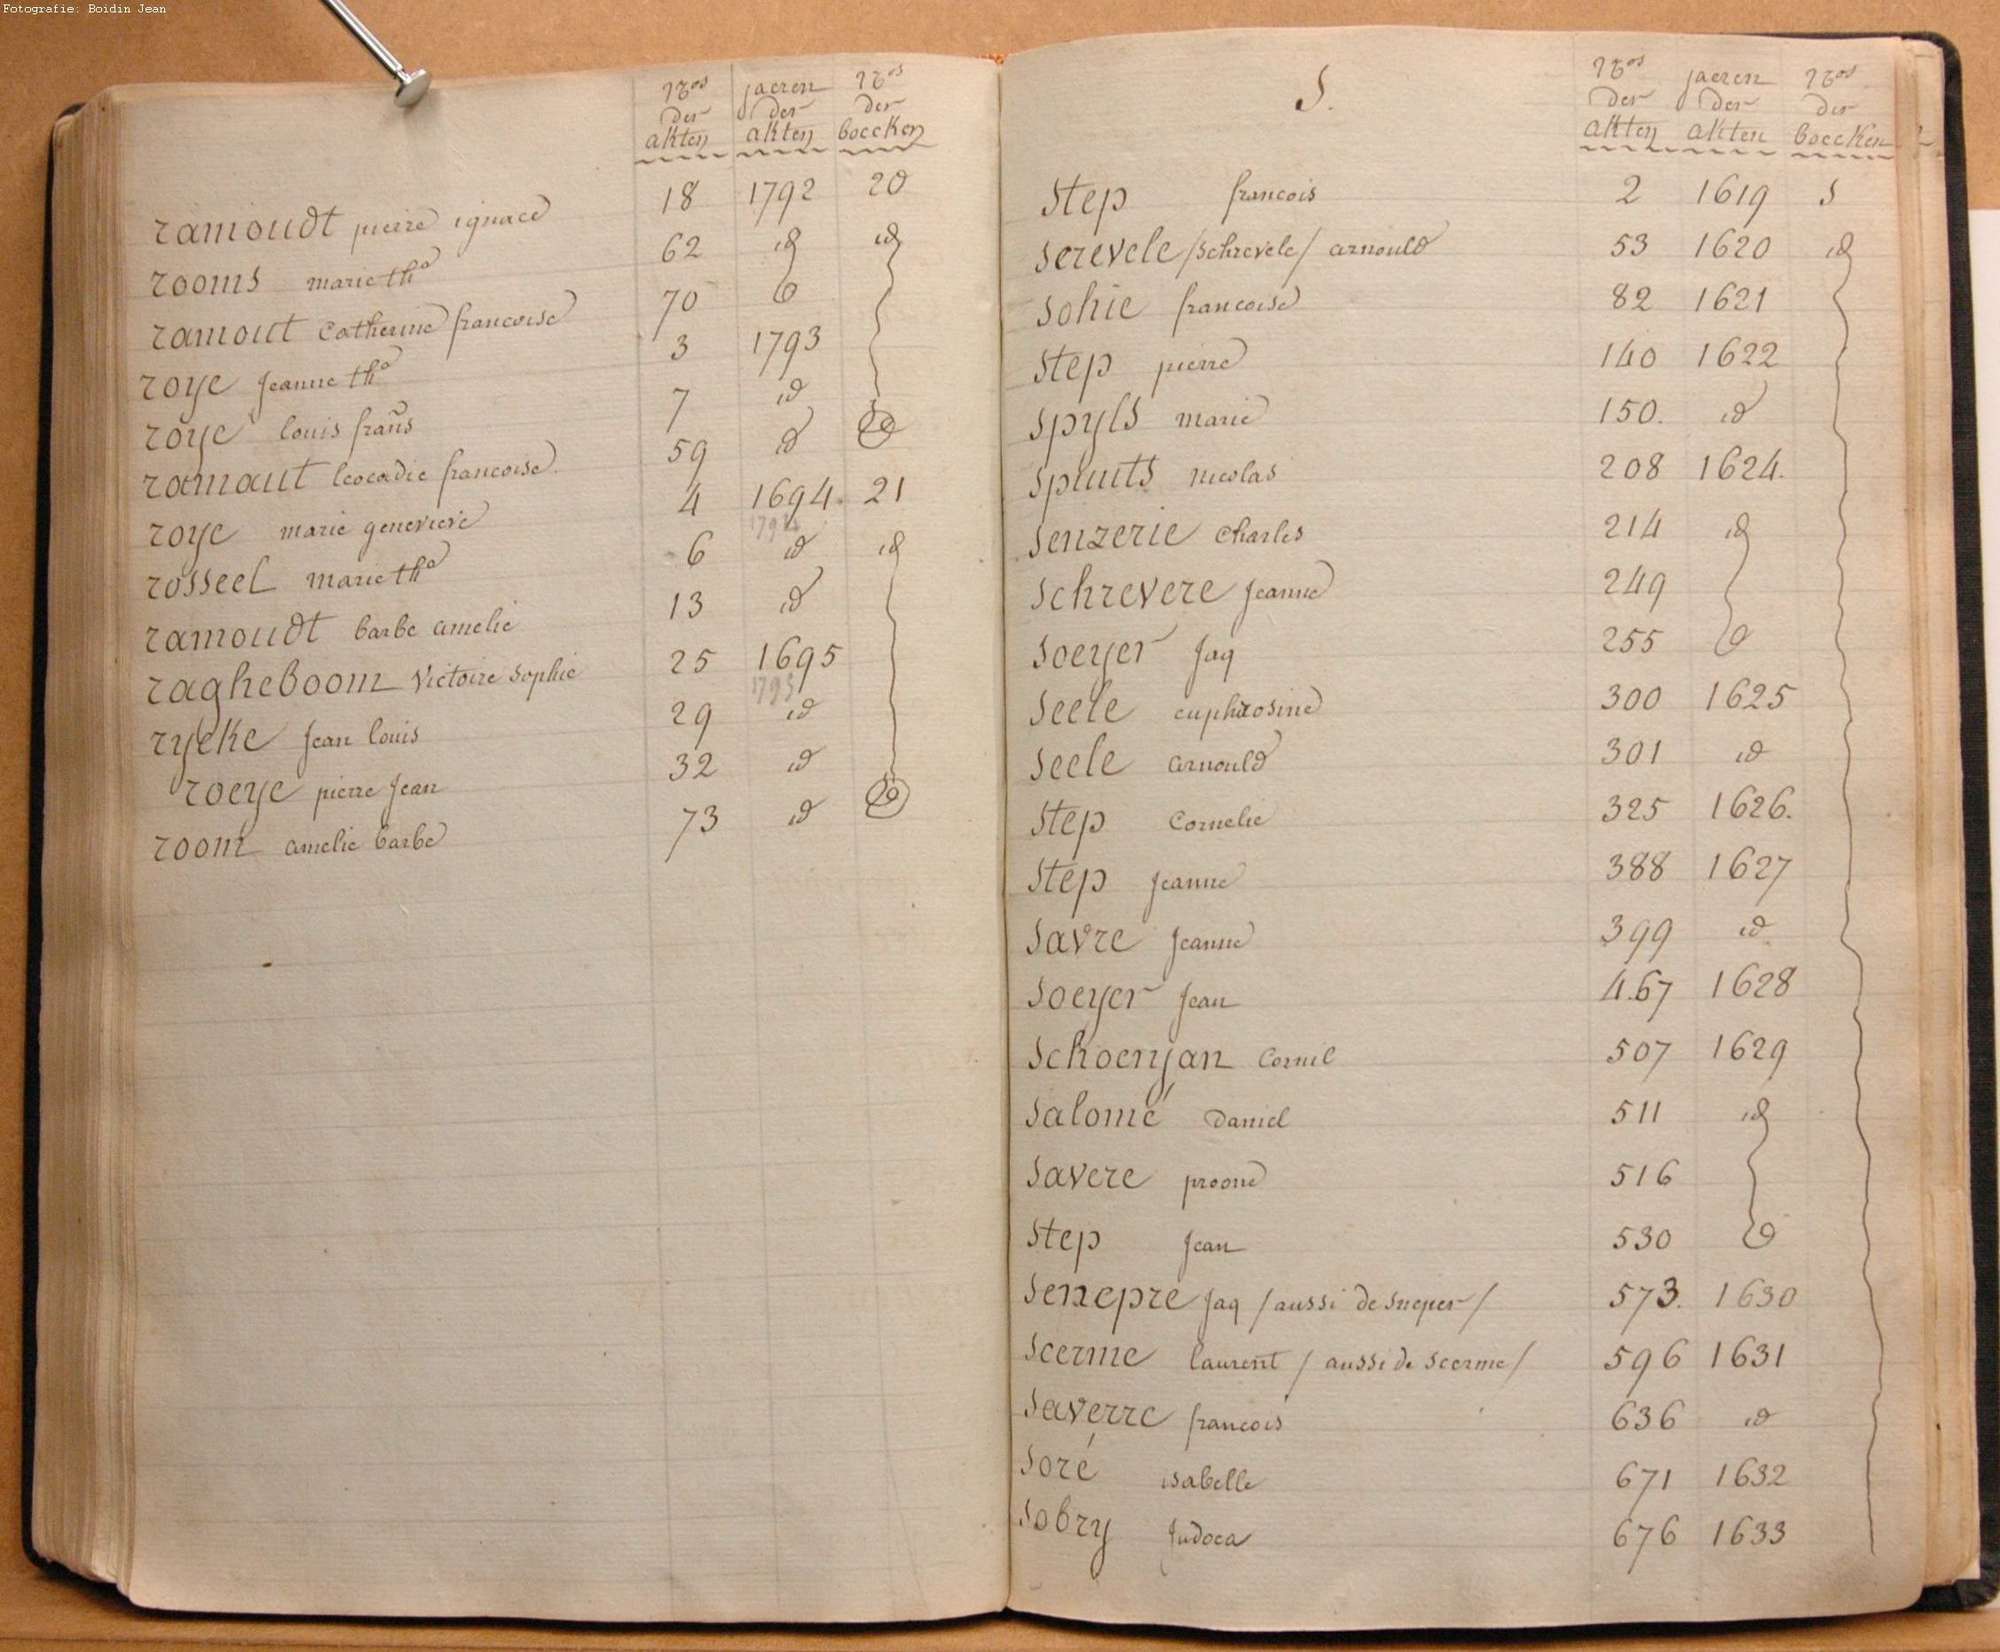 Fotografie: Boidin Jean
Nros jaeren Nros
der der der
akten akten boecken
ramoudt pierre ignace 18 1792 20
rooms marie tha 62 id id
ramout Catherine francoise 70
roye jeanne tha 3 1793
roye louis frans 7 id
ramaut leocadie francoise 59 id 20
roye marie genevieve 4 1694. 21
1794
rosseel marie tha 6 id id
ramoudt barbe amelie 13 id
ragheboom victoire sophie 25 1695
1795
ryeke jean louis 29 id
roeye pierre jean 32 id
room amelie barbe 73 id 20
S.
Nros jaeren Nros
der der der
akten akten boecken
step francois 2 1619 5
serevele /schrevele/ arnould 53 1620 id
sohie francoise 82 1621
step pierre 140 1622
spyls marie 150. id
spuuts nicolas 208 1624.
senzerie Charles 214 id
schrevere jeanne 249
soeyer jaq 255
seele euphrosine 300 1625
seele arnould 301 id
step Cornelie 325 1626.
step jeanne 388 1627
savre jeanne 399 id
soeyer jean 467 1628
schoenjan Cornil 507 1629
salomé Daniel 511 id
savere proone 516
step jean 530
senepre jaq /aussi de sneper/ 573. 1630
scerme laurent /aussi de scerme/ 596 1631
saverre francois 636 id
soré isabelle 671 1632
sobry judoca 676 1633